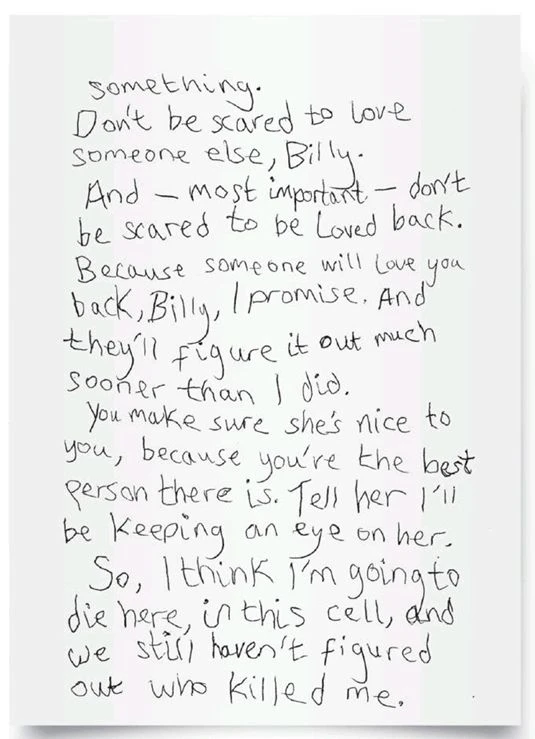 something.
Don't be scared to love
someone else, Billy.
And – most important – don't
be scared to be Loved back.
Because someone will love you
back, Billy, I promise. And
they'll figure it out much
sooner than I did.
You make sure she's nice to
you, because you're the best
person there is. Tell her I'll
be keeping an eye on her.
So, I think I'm going to
die here, in this cell, and
we still haven't figured
out who killed me.